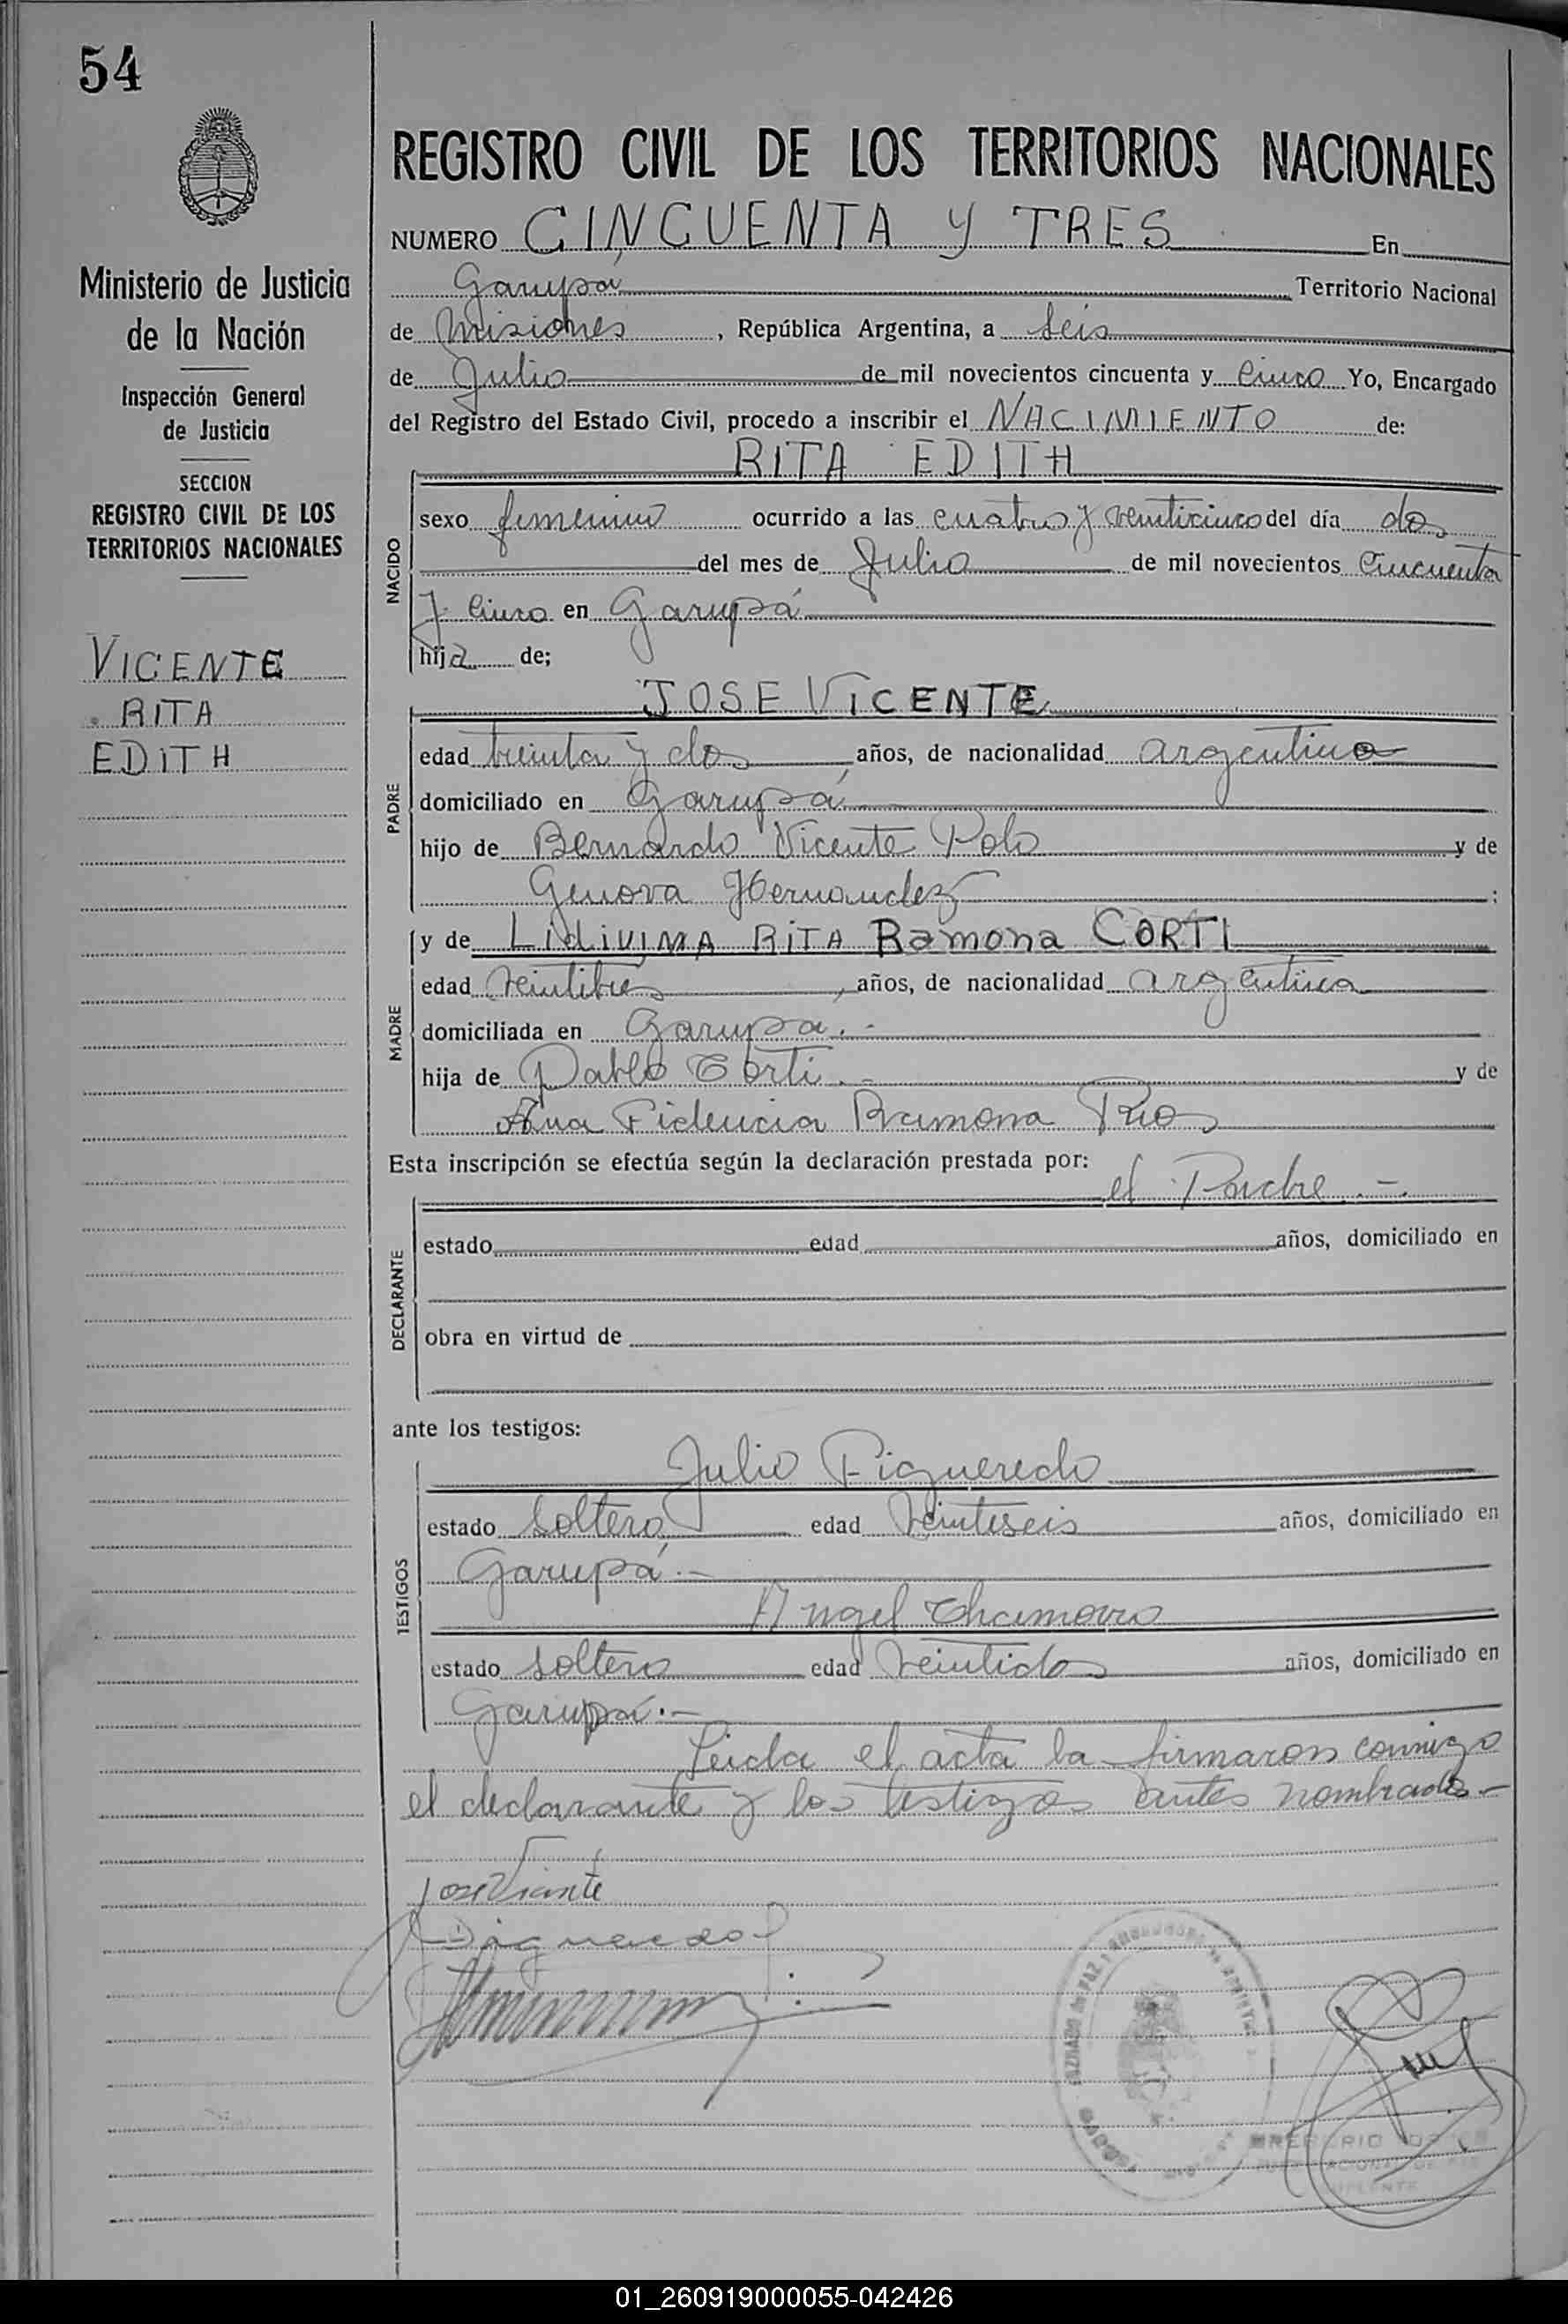 54
REGISTRO CIVIL DE LOS TERRITORIOS NACIONALES
NUMERO CINCUENTA Y TRES En
Garupá Territorio Nacional
de Misiones, República Argentina, a Seis
de Julio de mil novecientos cincuenta y Cinco Yo, Encargado
del Registro del Estado Civil, procedo a inscribir el NACIMIENTO de:
RITA EDITH
NACIDO
sexo femenino ocurrido a las cuatro y veinticinco del día dos
del mes de Julio de mil novecientos Cincuenta
y Cinco en Garupá
hija de;
JOSE VICENTE
PADRE
edad treinta y dos años, de nacionalidad argentina
domiciliado en Garupá
hijo de Bernardo Vicente Polo y de
Genova Hernandez ;
MADRE
y de LIDIVINA RITA Ramona CORTI
edad Veintitres, años, de nacionalidad argentina
domiciliada en Garupa.-
hija de Pablo Corti.- y de
Ana Fidencia Ramona Rios
Esta inscripción se efectúa según la declaración prestada por:
el Padre.-
DECLARANTE
estado edad años, domiciliado en
obra en virtud de
ante los testigos:
TESTIGOS
Julio Figueredo
estado Soltero edad Veintiseis años, domiciliado en
Garupá.-
Angel Chamorro
estado Soltero edad Veintidos años, domiciliado en
Garupá.-
Leida el acta la firmaron conmigo
el declarante y los testigos antes nombrados-
Jose Vicente
Figueredo
Ministerio de Justicia
de la Nación
Inspección General
de Justicia
SECCION
REGISTRO CIVIL DE LOS
TERRITORIOS NACIONALES
VICENTE
RITA
EDITH
JUZGADO de PAZ
01_260919000055-042426